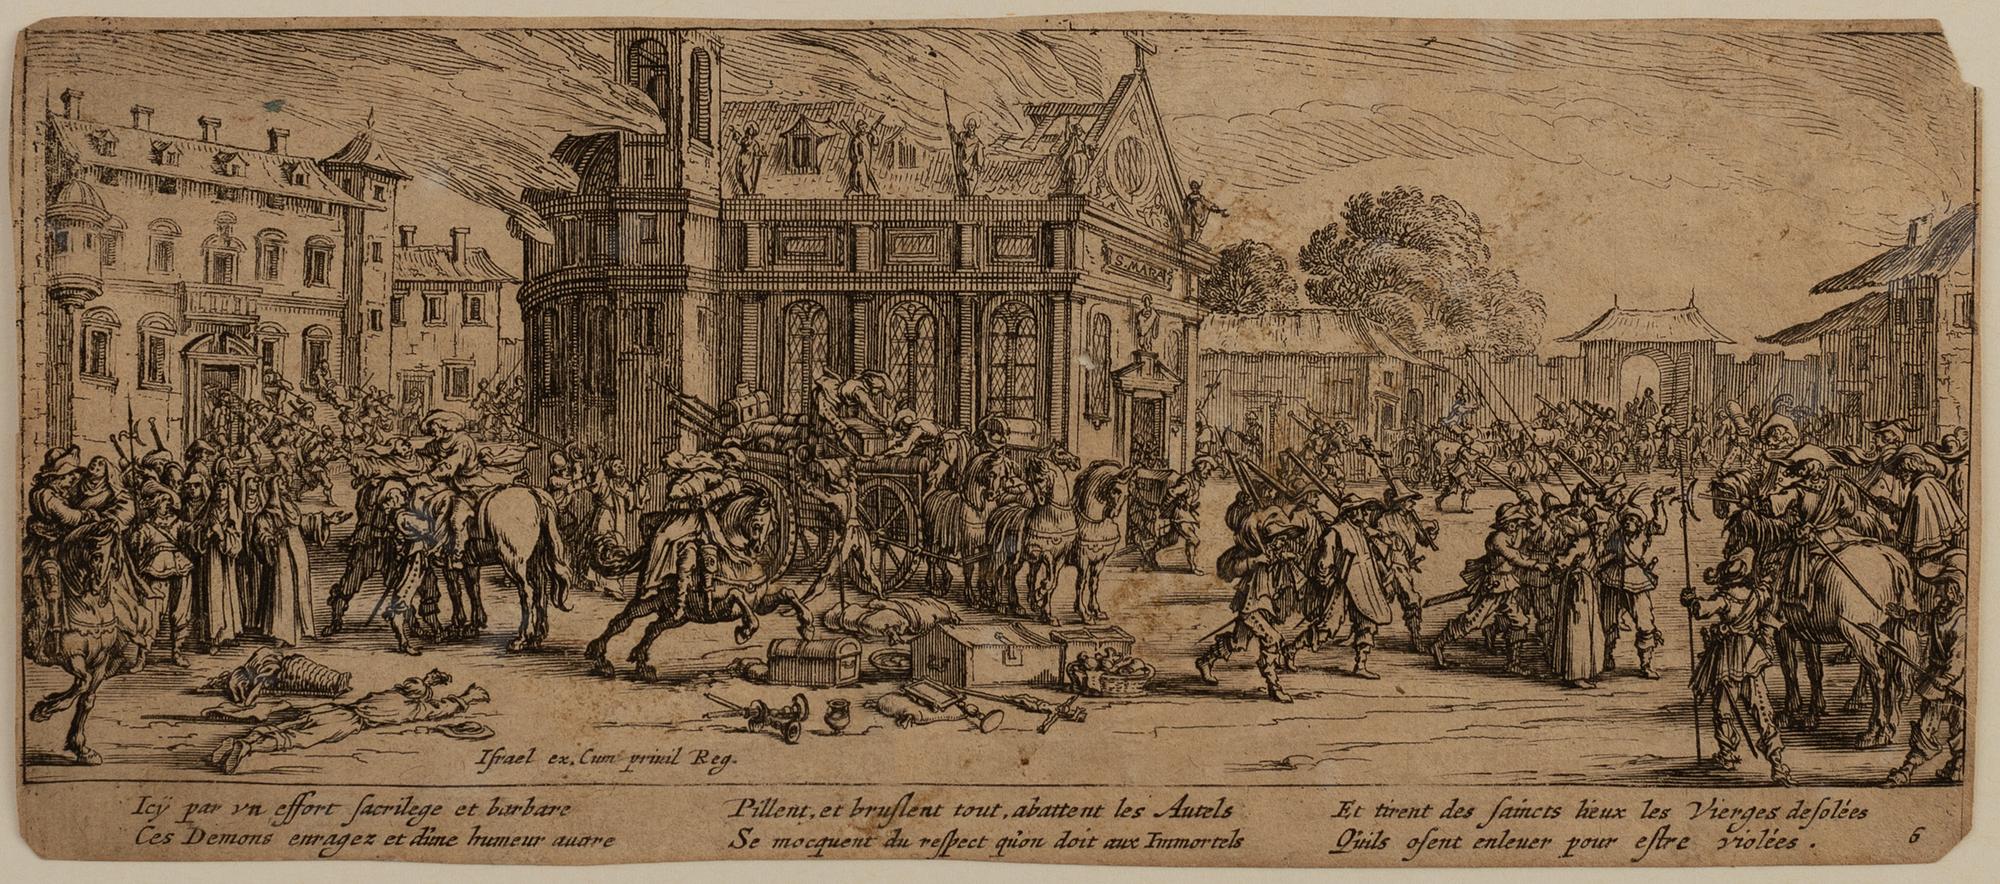 S. MARA
Israel ex. Cum priuil Reg.
Icÿ par vn effort sacrilege et barbare
Ces Demons enragez et d'une humeur auare
Pillent, et bruslent tout, abattent les Autels
Se mocquent du respect qu'on doit aux Immortels
Et tirent des saincts lieux les Vierges desolées
Qu'ils osent enleuer pour estre violées .
6